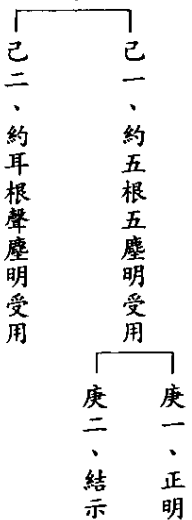 己一、約五根五塵明受用
庚一、正明
庚二、結示
己二、約耳根聲塵明受用